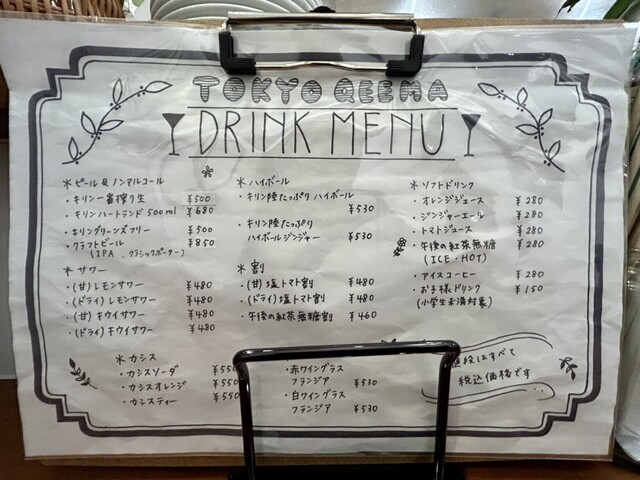 TOKYO QEEMA
DRINK MENU
＊ビール&ノンアルコール
・キリン一番搾り生 ¥500
・キリンハートランド500ml ¥680
・キリングリーンズフリー ¥500
・クラフトビール ¥850
(IPA、クラシックポーター)
＊サワー
・(甘)レモンサワー ¥480
・(ドライ)レモンサワー ¥480
・(甘)キウイサワー ¥480
・(ドライ)キウイサワー ¥480
＊カシス
・カシスソーダ ¥550
・カシスオレンジ ¥550
・カシスティー ¥550
＊ハイボール
・キリン陸たっぷり ハイボール
¥530
・キリン陸たっぷり
ハイボールジンジャー ¥530
＊割り
・(甘)塩トマト割 ¥480
・(ドライ)塩トマト割 ¥480
・午後の紅茶無糖割 ¥460
・赤ワイングラス
フランジア ¥530
・白ワイングラス
フランジア ¥530
＊ソフトドリンク
・オレンジジュース ¥280
・ジンジャーエール ¥280
・トマトジュース ¥280
・午後の紅茶無糖 ¥280
(ICE・HOT)
・アイスコーヒー ¥280
・お子様ドリンク ¥150
(小学生未満対象)
値段はすべて
税込価格です